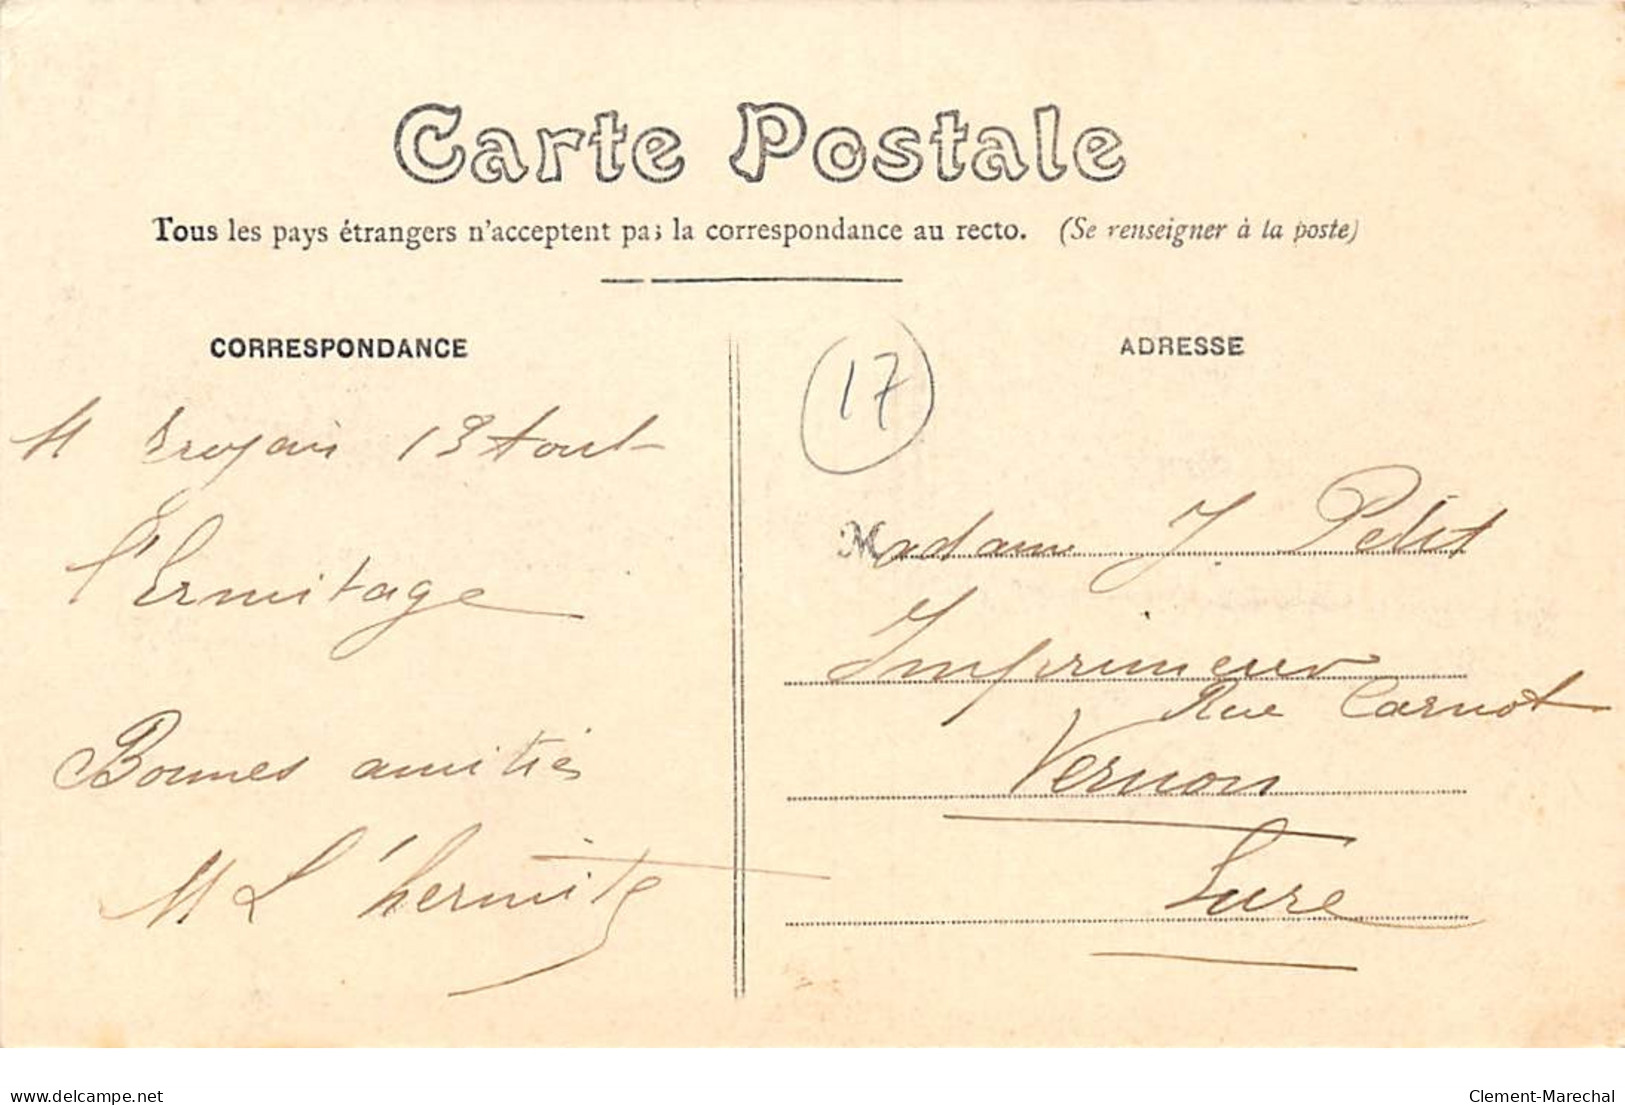 Carte Postale
Tous les pays étrangers n'acceptent pas la correspondance au recto. (Se renseigner à la poste)
CORRESPONDANCE
St Trojan 13 Aout
l'Ermitage
Bonnes amitiés
M L'hermite
17
ADRESSE
Madame J Petit
Imprimeur
Rue Carnot
Vernon
Eure
delcampe.net
Clement-Marechal